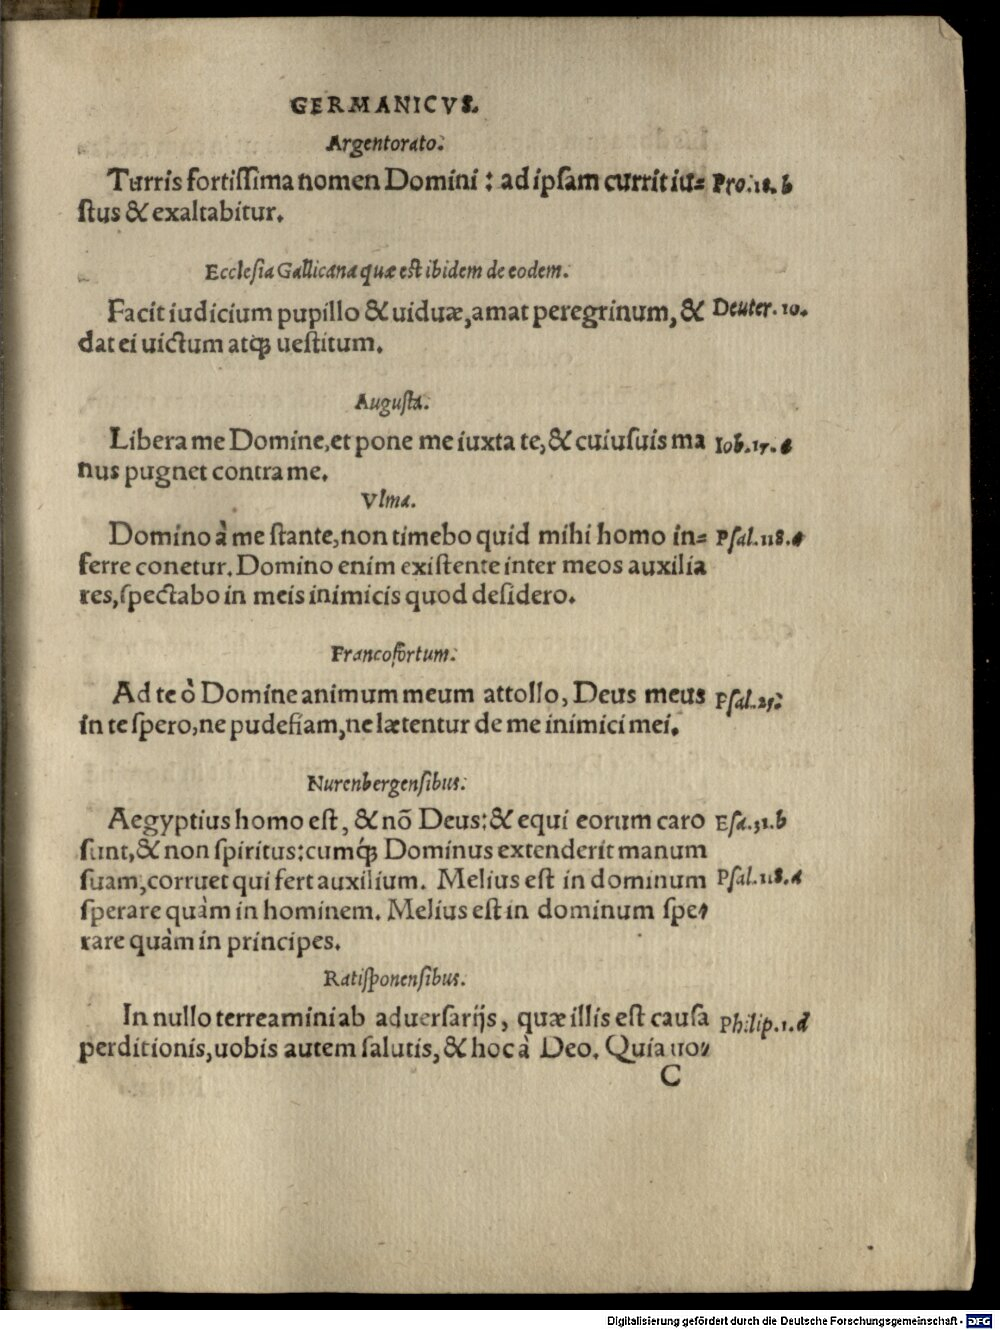 GERMANICVS.
Argentorato.
Turris fortiſſima nomen Domini : ad ipſam currit iu= Pro.18.b
ſtus & exaltabitur.
Eccleſia Gallicana quæ eſt ibidem de eodem.
Facit iudicium pupillo & uiduæ, amat peregrinum, & Deuter.10.
dat ei uictum atq; ueſtitum.
Auguſta.
Libera me Domine, et pone me iuxta te, & cuiuſuis ma Iob.17.a
nus pugnet contra me.
Vlma.
Domino à me ſtante, non timebo quid mihi homo in= Pſal.118.a
ferre conetur. Domino enim exiſtente inter meos auxilia
res, ſpectabo in meis inimicis quod deſidero.
Francofortum.
Ad te ò Domine animum meum attollo, Deus meus Pſal.25.
in te ſpero, ne pudefiam, ne lætentur de me inimici mei.
Nurenbergenſibus.
Aegyptius homo eſt, & nõ Deus: & equi eorum caro Eſa.31.b
ſunt, & non ſpiritus: cumq́; Dominus extenderit manum
ſuam, corruet qui fert auxilium. Melius eſt in dominum Pſal.118.a
ſperare quàm in hominem. Melius eſt in dominum ſpe=
rare quàm in principes.
Ratiſponenſibus.
In nullo terreamini ab aduerſarijs, quæ illis eſt cauſa Philip.1.d
perditionis, uobis autem ſalutis, & hoc à Deo. Quia uo=
C
Digitalisierung gefördert durch die Deutsche Forschungsgemeinschaft - DFG